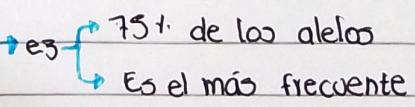 75% de los alelos
e3
Es el más frecuente